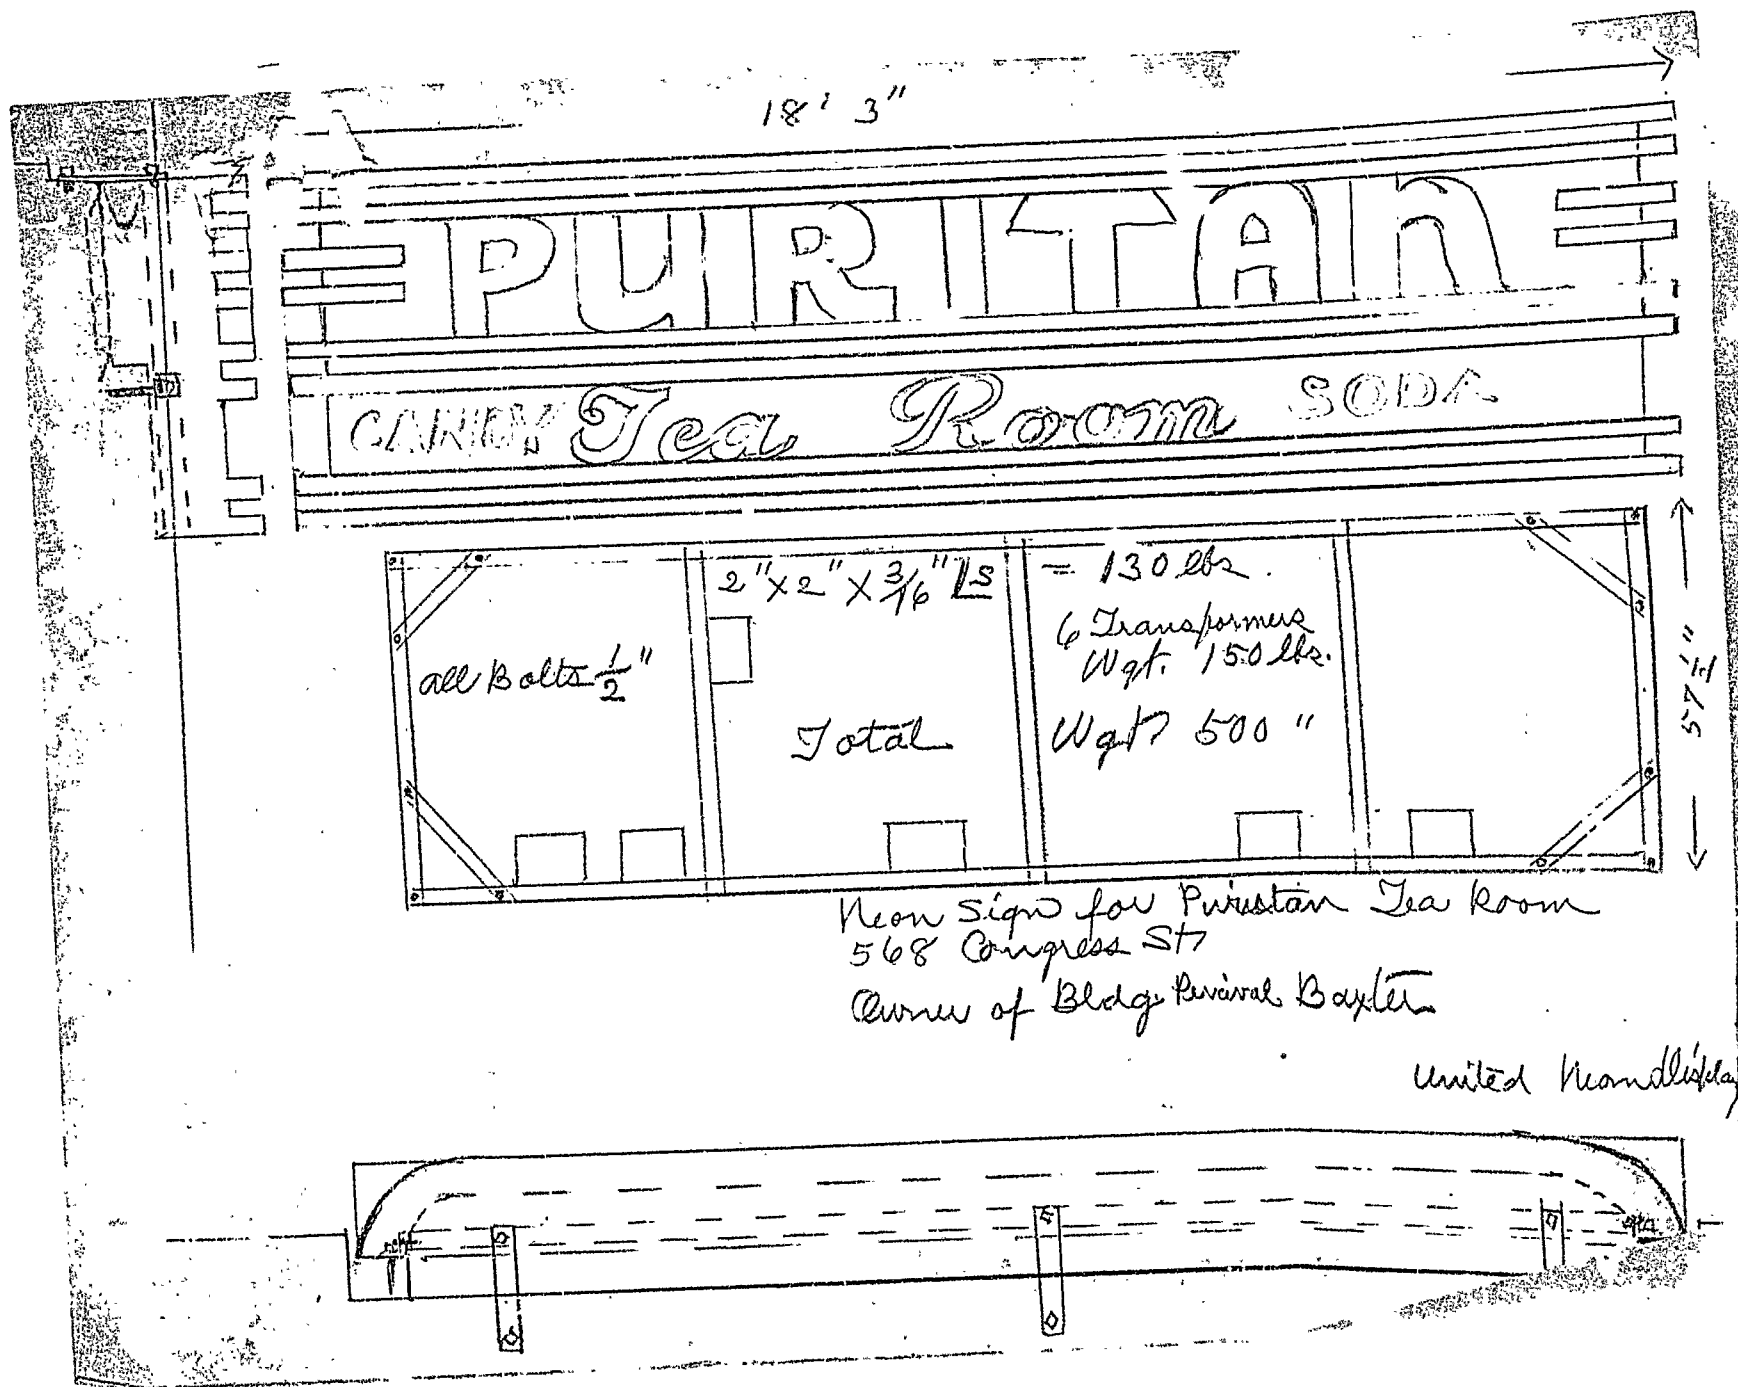 18' 3"
PURITAN
CANDY Tea Room SODA
2" X 2" X 3/16" Ls = 130 lbs.
6 Transformers
Wgt. 150 lbs.
all Bolts 1/2"
Total Wgt 500 "
57 1/2"
Neon Sign for Puristan Tea Room
568 Congress St
Owner of Bldg. Percival Baxter
United Neon Display